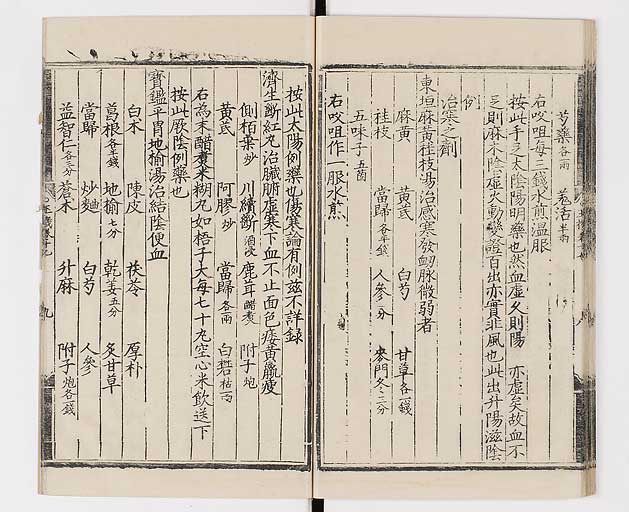 芍藥各二兩 羌活半兩
右㕮咀每三錢水煎温服
按此手乏太陰陽明藥也然血虛久則陽 亦虛矣故血不
乏則麻木陰虛火動變證百出亦實非風也此出升陽滋陰
例
治寒之劑
東垣麻黄桂枝湯治感寒發衂脉微弱者
麻黄 黄芪 白芍 甘草各一錢
桂枝 當歸各半錢 人參一分 麥門冬二分
五味子五箇
右㕮咀作一服水煎
按此太陽例藥也傷寒論有例兹不詳録
濟生斷紅丸治臟腑虛寒下血不止面色痿黄羸瘦
側栢葉炒 川續斷酒浸 鹿茸醋煮 附子炮
黄芪 阿膠炒 當歸各一兩 白礬枯一兩
右為末醋煮米糊丸如梧子大每七十丸空心米飲送下
按此厥陰例藥也
寶鑑平胃地榆湯治結陰便血
白朮 陳皮 茯苓 厚朴
葛根各五錢 地榆七分 乾姜五分 炙甘草
當歸 炒麯 白芍 人參
益智仁各三分 蒼朮 升麻 附子炮各一錢